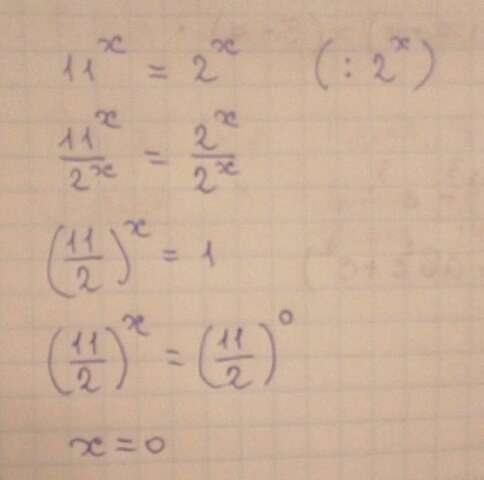 11^x = 2^x (: 2^x)
11^x/2^x = 2^x/2^x
(11/2)^x = 1
(11/2)^x = (11/2)^0
x = 0